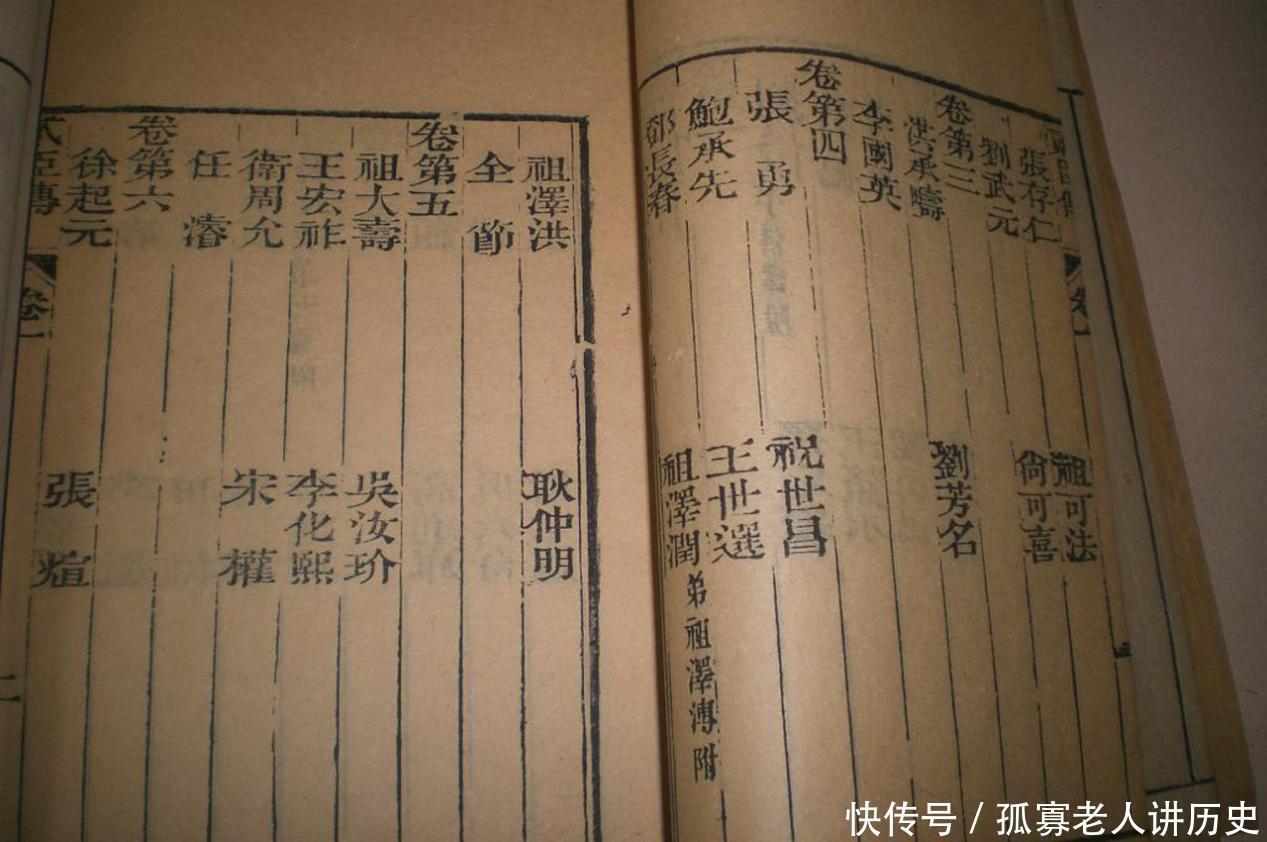 張存仁 祖可法
劉武元 尚可喜
卷第三
洪承疇 劉芳名
李國英
卷第四
張勇 祝世昌
鮑承先 王世選
鄧長春 祖澤潤 弟祖澤溥附
祖澤洪 耿仲明
全節
卷第五
祖大壽 吳汝玠
王宏祚 李化熙
衛周允 宋權
任濬
卷第六
徐起元 張煊
臣傳 卷一
快传号 / 孤寡老人讲历史